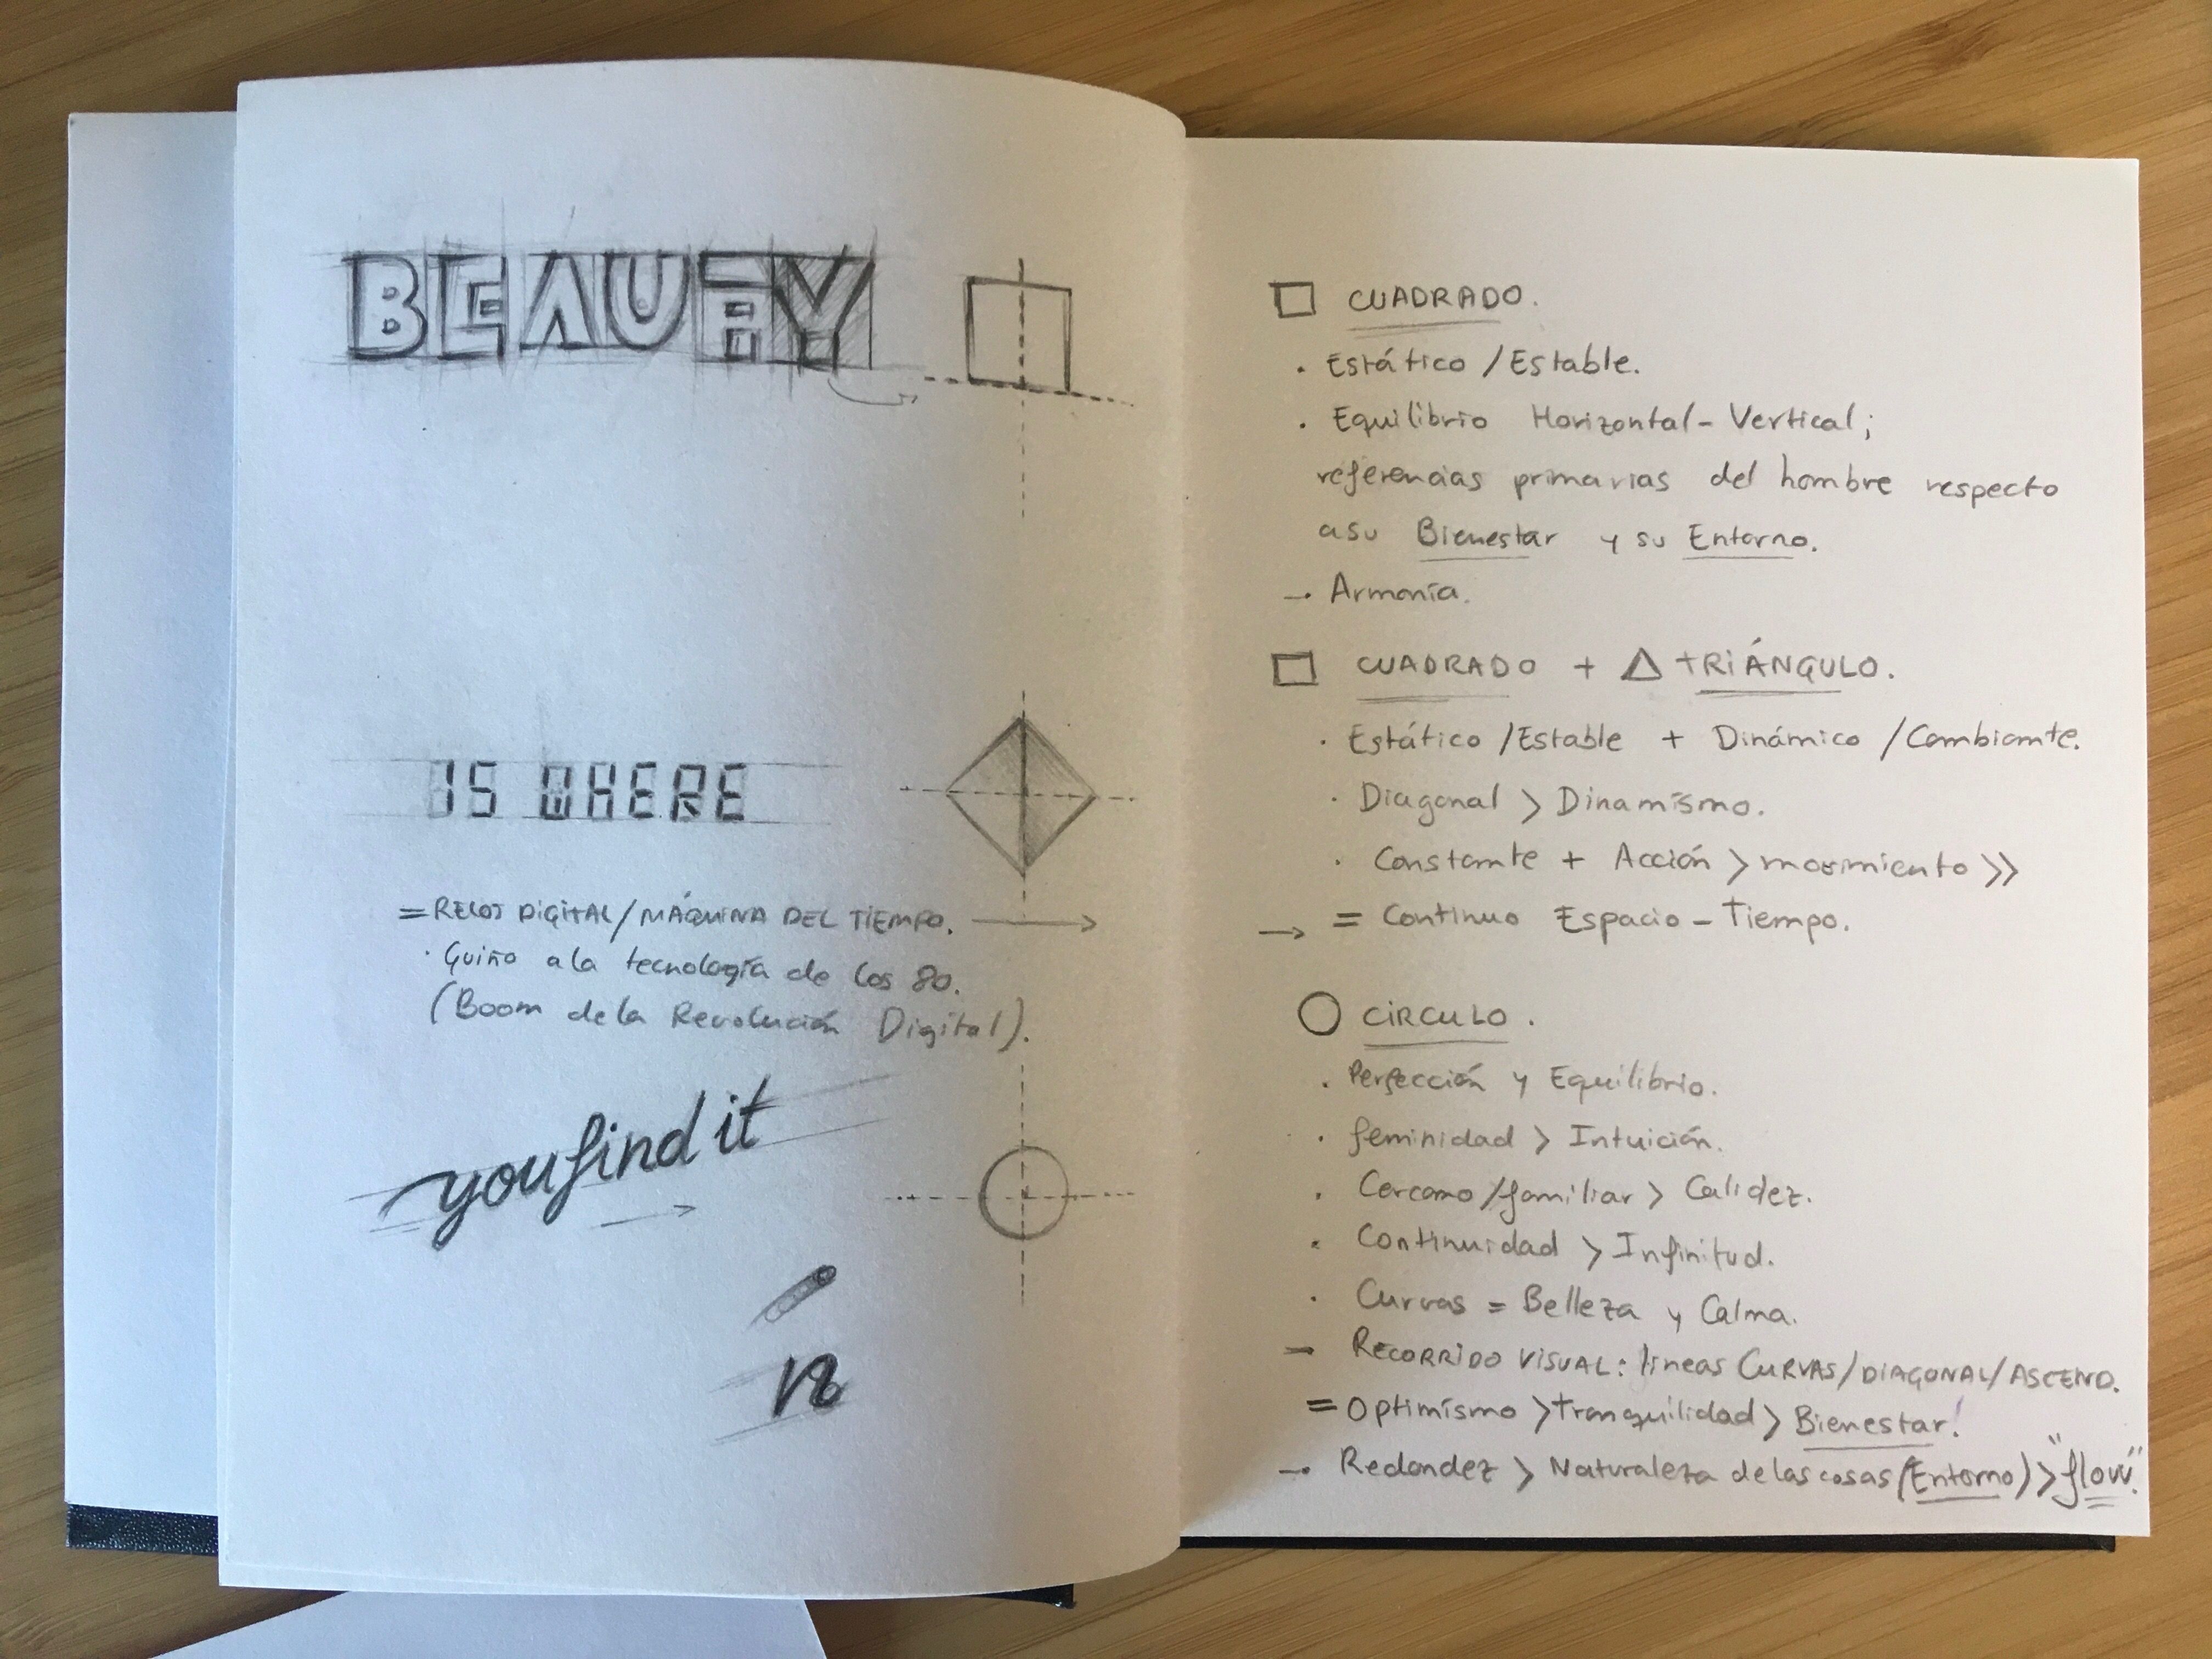 BEAUTY
IS WHERE
= RELOJ DIGITAL/MÁQUINA DEL TIEMPO.
· Guiño a la tecnología de los 80.
(Boom de la Revolución Digital).
you find it
n
□ CUADRADO.
· Estático/Estable.
· Equilibrio Horizontal-Vertical;
referencias primarias del hombre respecto
a su Bienestar y su Entorno.
→ Armonía.
□ CUADRADO + △ TRIÁNGULO.
· Estático/Estable + Dinámico/Cambiante.
· Diagonal > Dinamísmo.
· Constante + Acción > movimiento >>
→ = Continuo Espacio-Tiempo.
○ CÍRCULO.
· Perfección y Equilibrio.
· feminidad > Intuición.
· Cercano/familiar > Calidez.
· Continuidad > Infinitud.
· Curvas = Belleza y Calma.
→ RECORRIDO VISUAL: líneas CURVAS/DIAGONAL/ASCEND.
= Optimísmo > Tranquilidad > Bienestar!
→ Redondez > Naturaleza de las cosas (Entorno) > "flow".